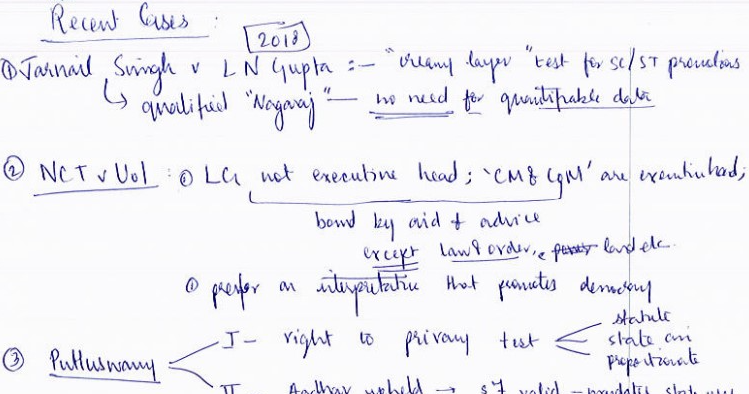 Recent Cases :
2018
① Jarnail Singh v L N Gupta :- "creamy layer" test for SC/ST promotions
↳ qualified "Nagaraj" — no need for quantifiable data
② NCT v UoI : ① LG not executive head; 'CM & CoM' are executive head;
bound by aid & advice
except law & order, land etc.
② prefer an interpretation that promotes democracy
③ Puttuswamy
I - right to privacy test
statute
state aim
proportionate
II Aadhar upheld → S7 valid - mandates state